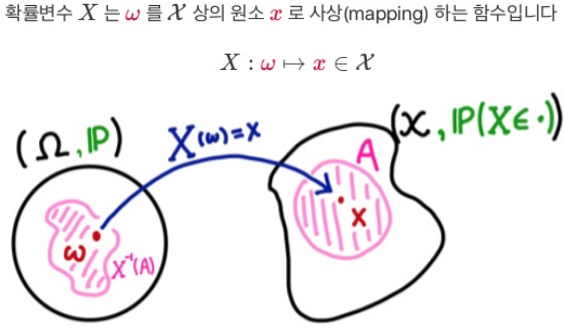 확률변수 X 는 ω 를 𝒳 상의 원소 x 로 사상(mapping) 하는 함수입니다
X : ω ↦ x ∈ 𝒳
(Ω, ℙ)
X(ω)=x
(𝒳, ℙ(X∈·))
A
ω
x
X⁻¹(A)